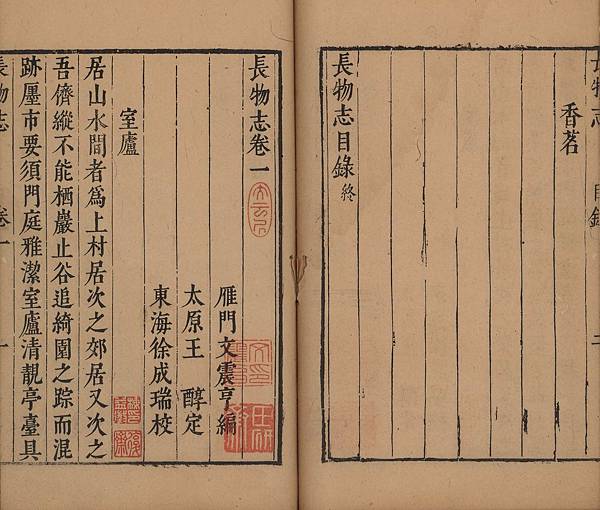 長物志
目錄
二
香茗
長物志目錄終
長物志卷一
雁門文震亨編
太原王 醇定
東海徐成瑞校
室廬
居山水間者為上村居次之郊居又次之
吾儕縱不能栖巖止谷追綺園之踪而混
跡廛市要須門庭雅潔室廬清靚亭臺具
長物志
卷一
一